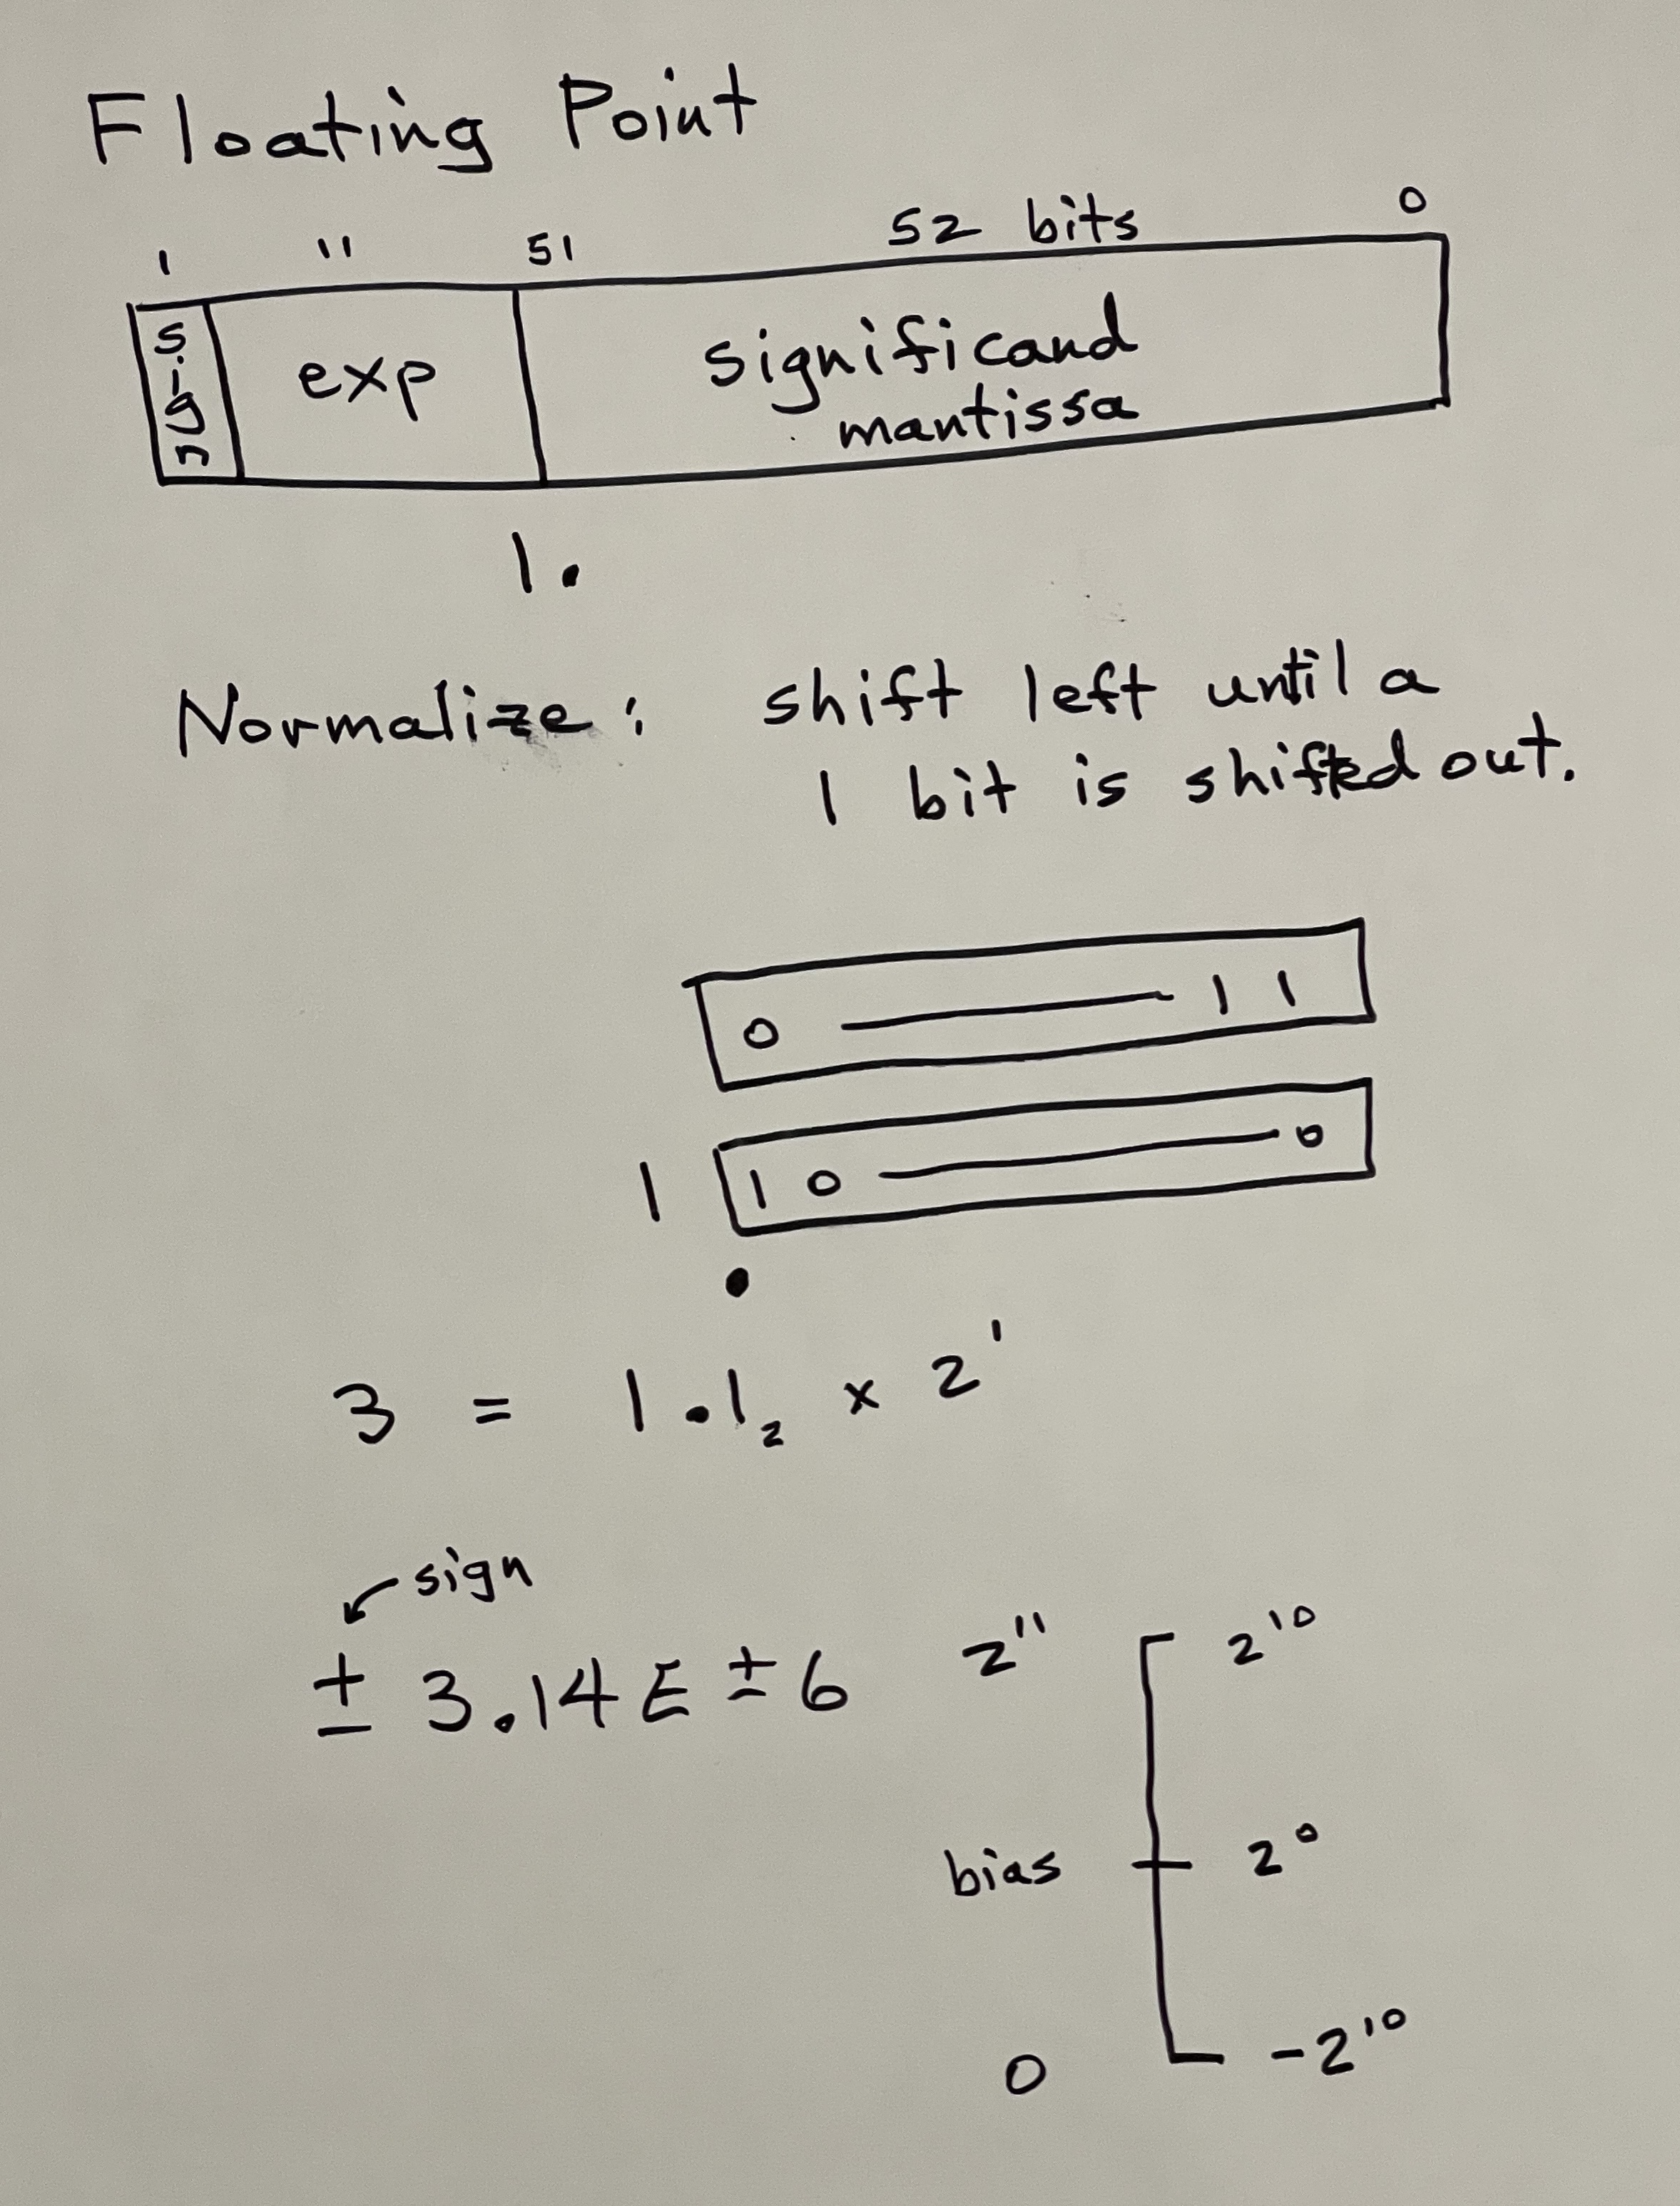 Floating Point
1 11 51 52 bits 0
sign exp significand
mantissa
1.
Normalize: shift left until a
1 bit is shifted out.
0 — 1 1
1 1 0 — 0
.
3 = 1.1₂ x 2¹
sign
± 3.14 E ± 6
2¹¹ 2¹⁰
bias 2⁰
0 -2¹⁰